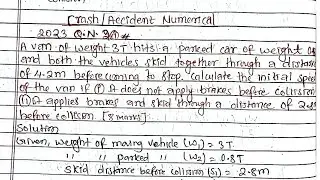 Crash/Accident Numerical
2023 Q.N.
A van of weight 3T hits a parked car of weight
and both the vehicles skid together through a distance
of 4.2m before coming to stop. calculate the initial speed
of the van if (i) It does not apply brakes before collision
(ii) It applies brakes and skid through a distance of 2.8
before collision. [8 marks]
Solution
Given, weight of moving vehicle (W₁) = 3T
" " parked " (W₂) = 0.8T
skid distance before collision (S₁) = 2.8m